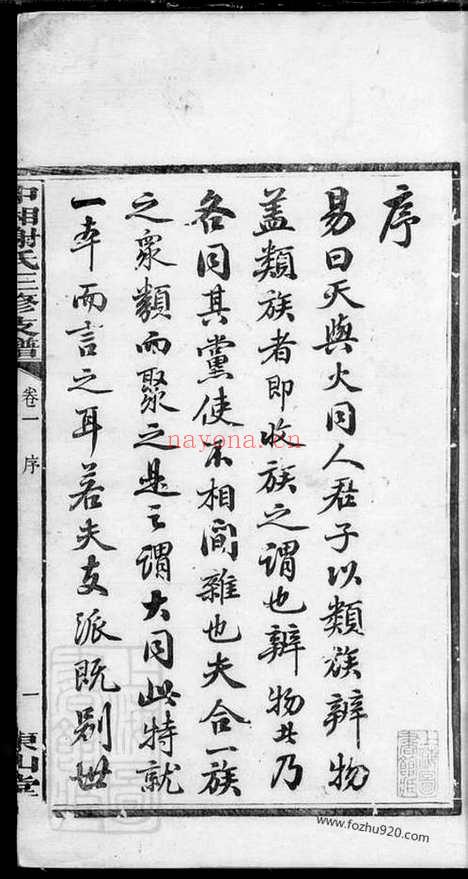 序
易曰天與火同人君子以類族辨物
蓋類族者即收族之謂也辨物者乃
各同其黨使不相間雜也夫合一族
之衆類而聚之是之謂大同此特就
一本而言之耳若夫支派既別世
中湘謝氏三修支譜
卷一 序
一
東山堂
nayona.cn
www.fozhu920.com